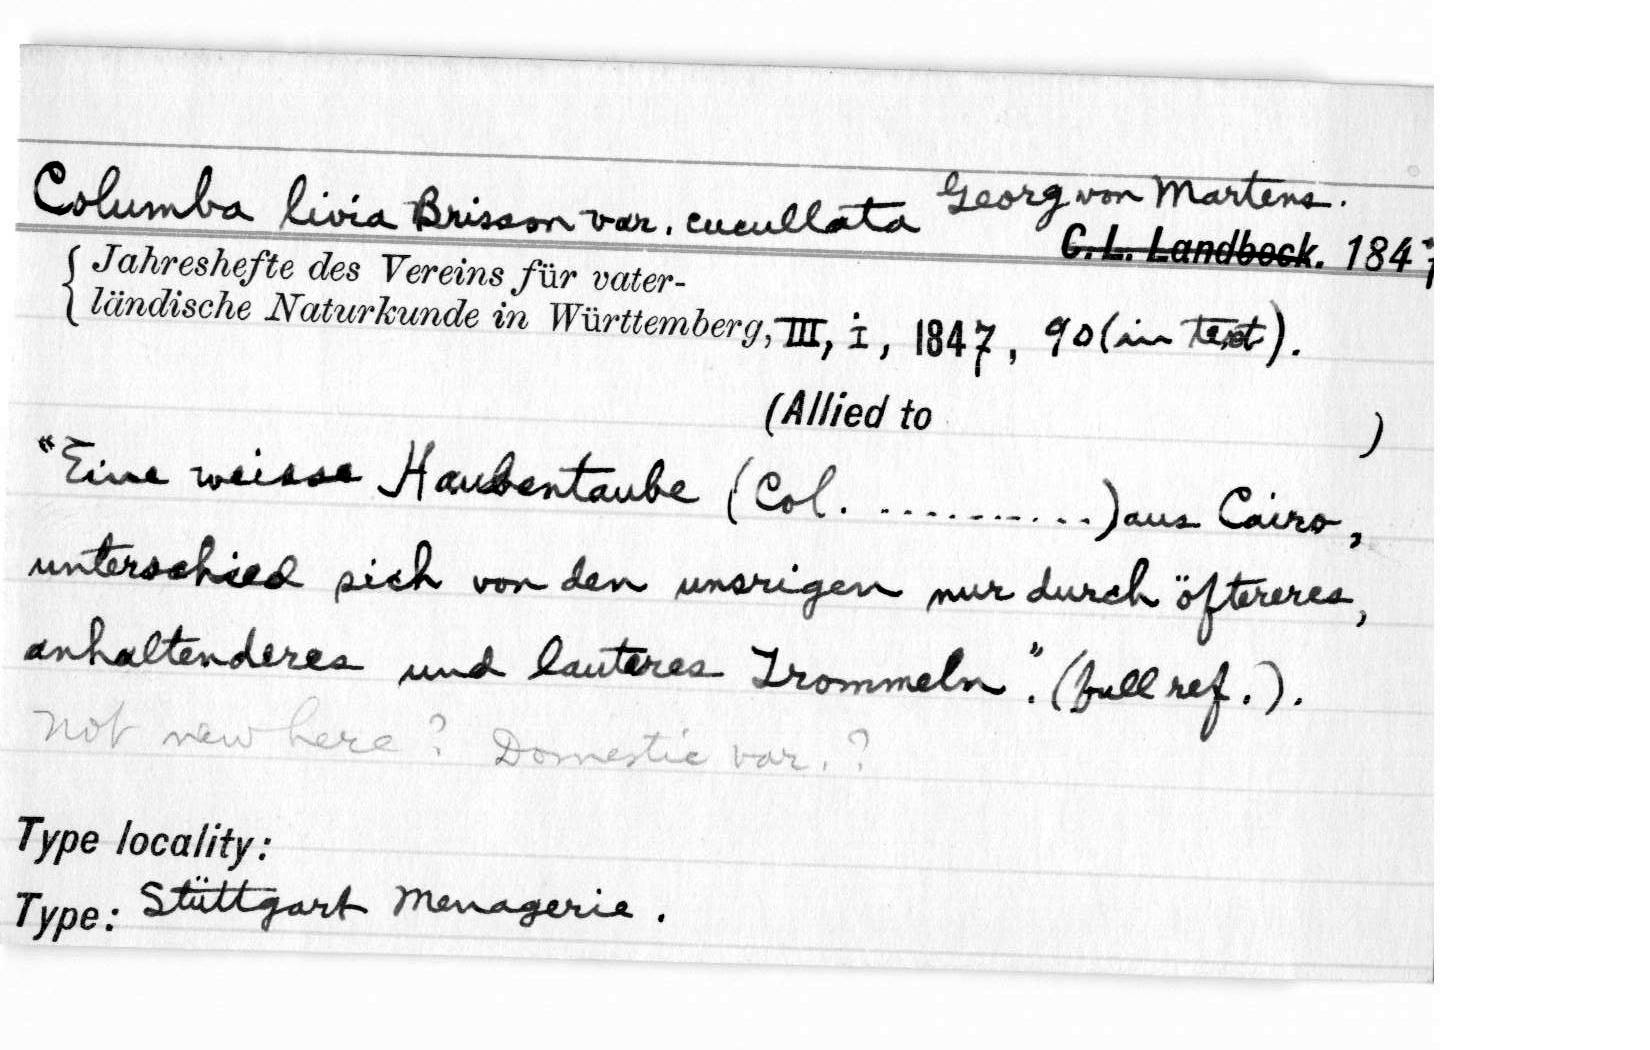 Columba livia Brisson var. cucullata Georg von Martens.
C. L. Landbeck. 1847
Jahreshefte des Vereins für vater-
ländische Naturkunde in Württemberg, III, i, 1847, 90 (in text).
(Allied to )
"Eine weisse Haubentaube (Col. ...........) aus Cairo,
unterschied sich von den unsrigen nur durch öftereres,
anhaltenderes und lauteres Trommeln." (full ref.).
Not new here? Domestic var.?
Type locality:
Type: Stüttgart Menagerie.